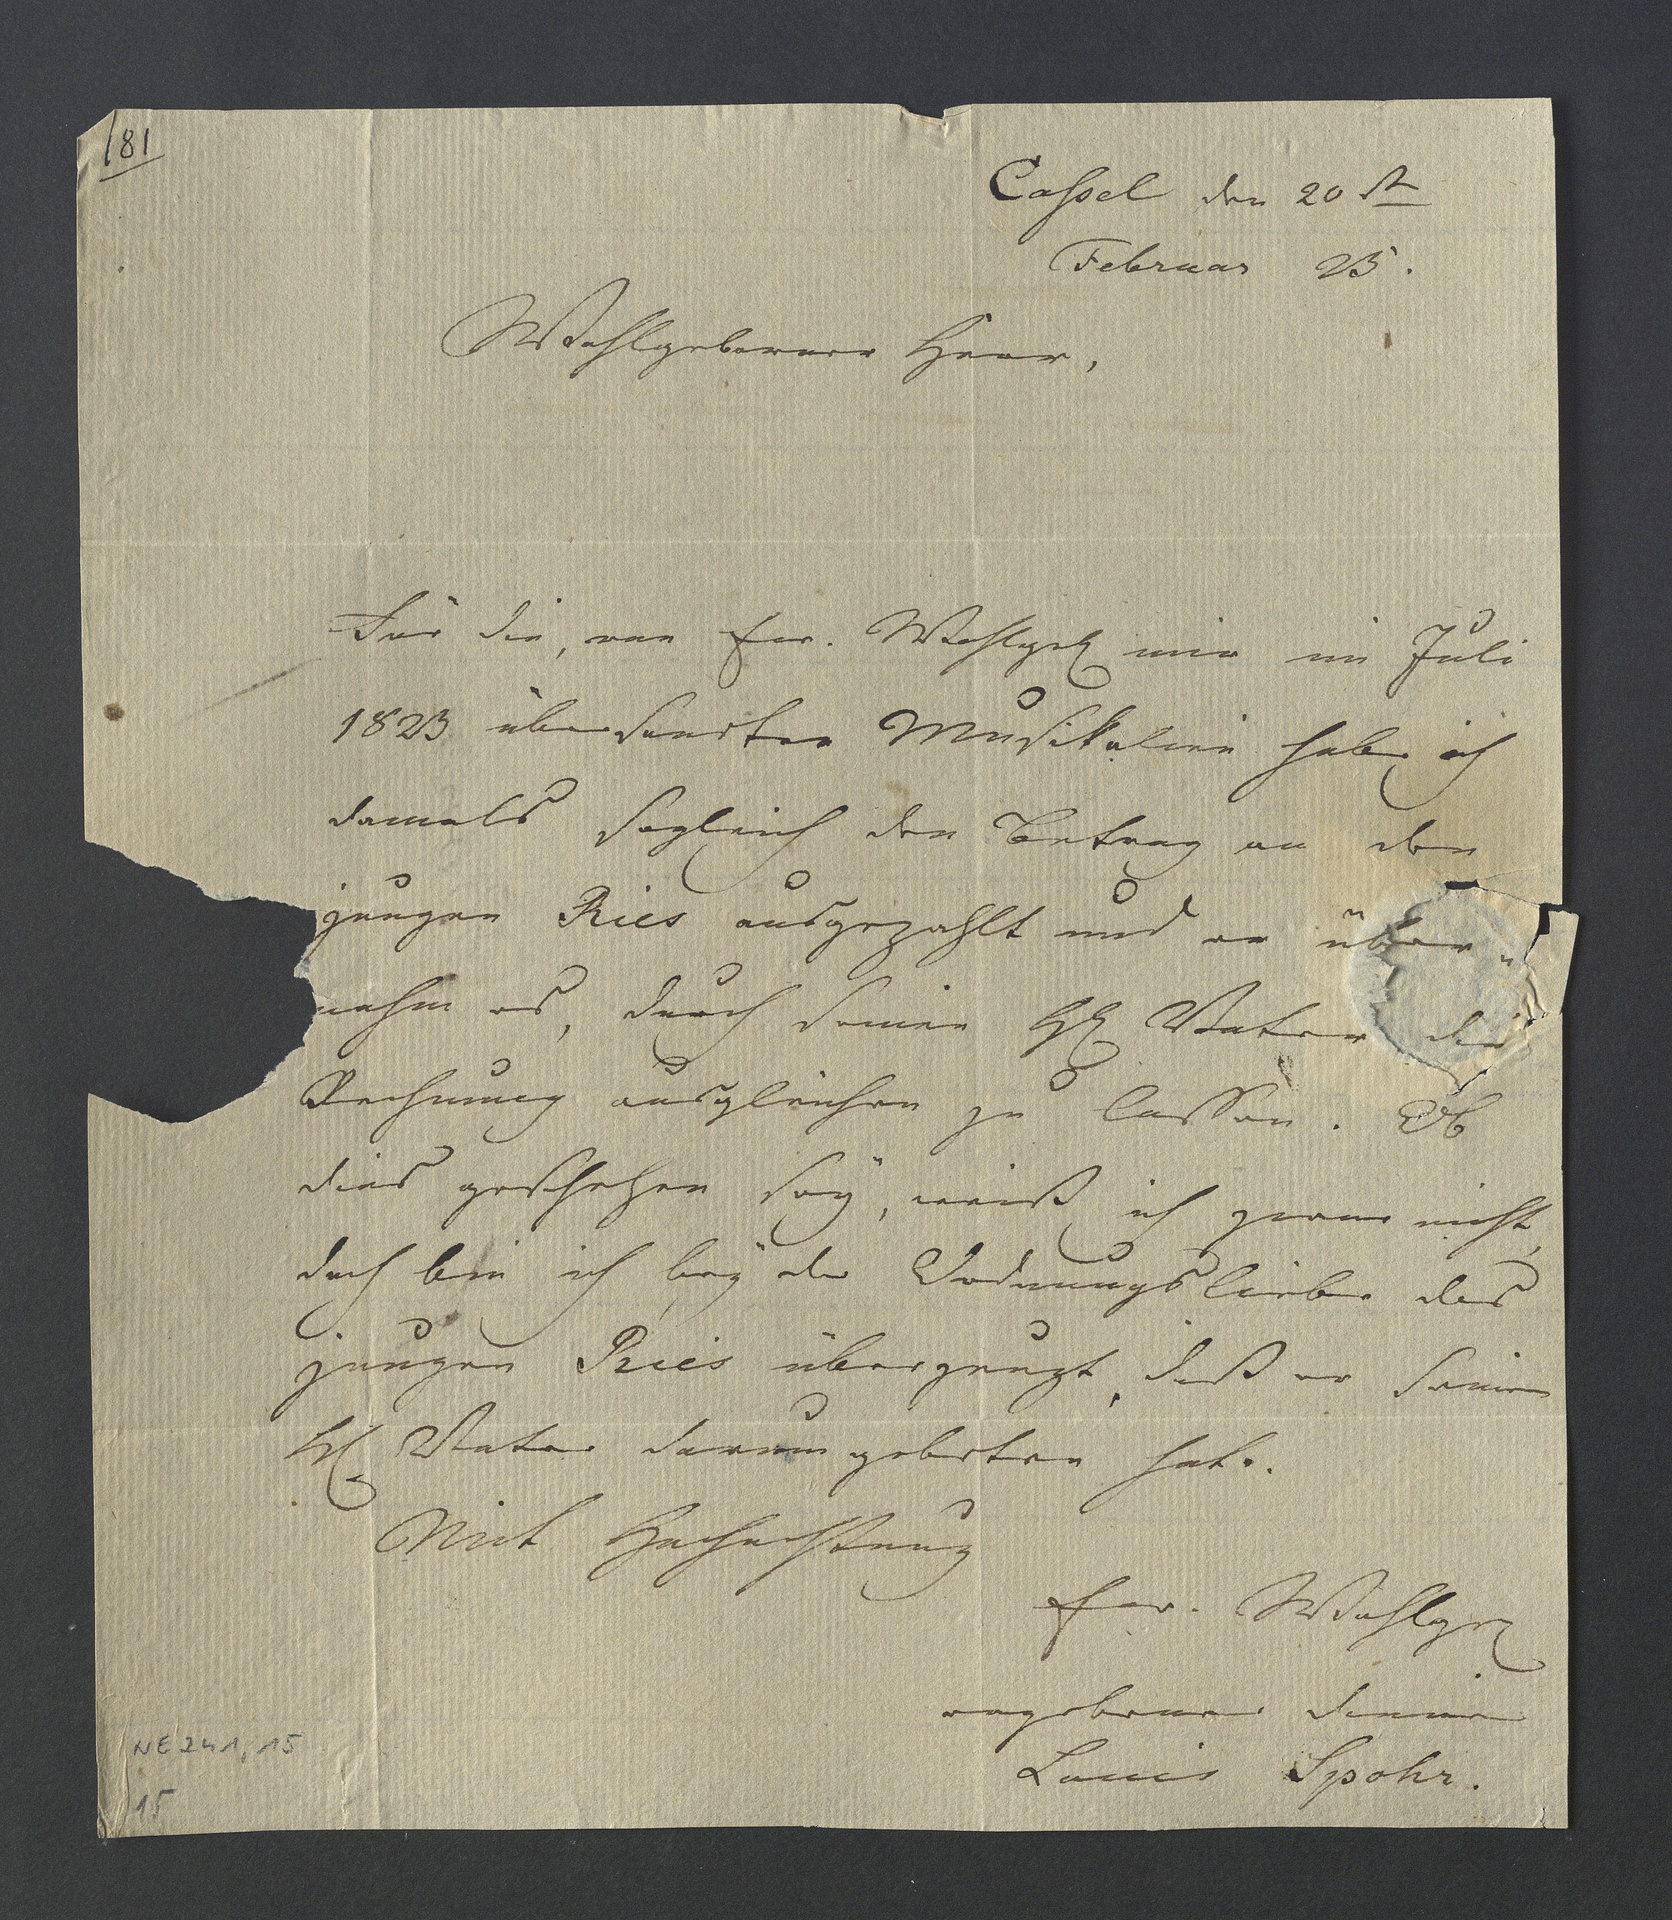 181
Cassel den 20st
Februar 25.
Wohlgeborner Herr,
Für die, von Ew. Wohlgeb. mir im Juli
1823 übersandten Musikalien habe ich
damals sogleich den Betrag an den
jungen Ries ausgezahlt und er über„
nahm es, durch seinen H. Vater die
Rechnung ausgleichen zu lassen. Ob
dies geschehen sey, weiß ich zwar nicht,
doch bin ich bey der Ordnungsliebe des
jungen Ries überzeugt, daß er seinen
H. Vater darum gebeten hat.
Mit Hochachtung
Ew. Wohlgeb.
ergebener Diener
Louis Spohr.
NE 241, 15
15